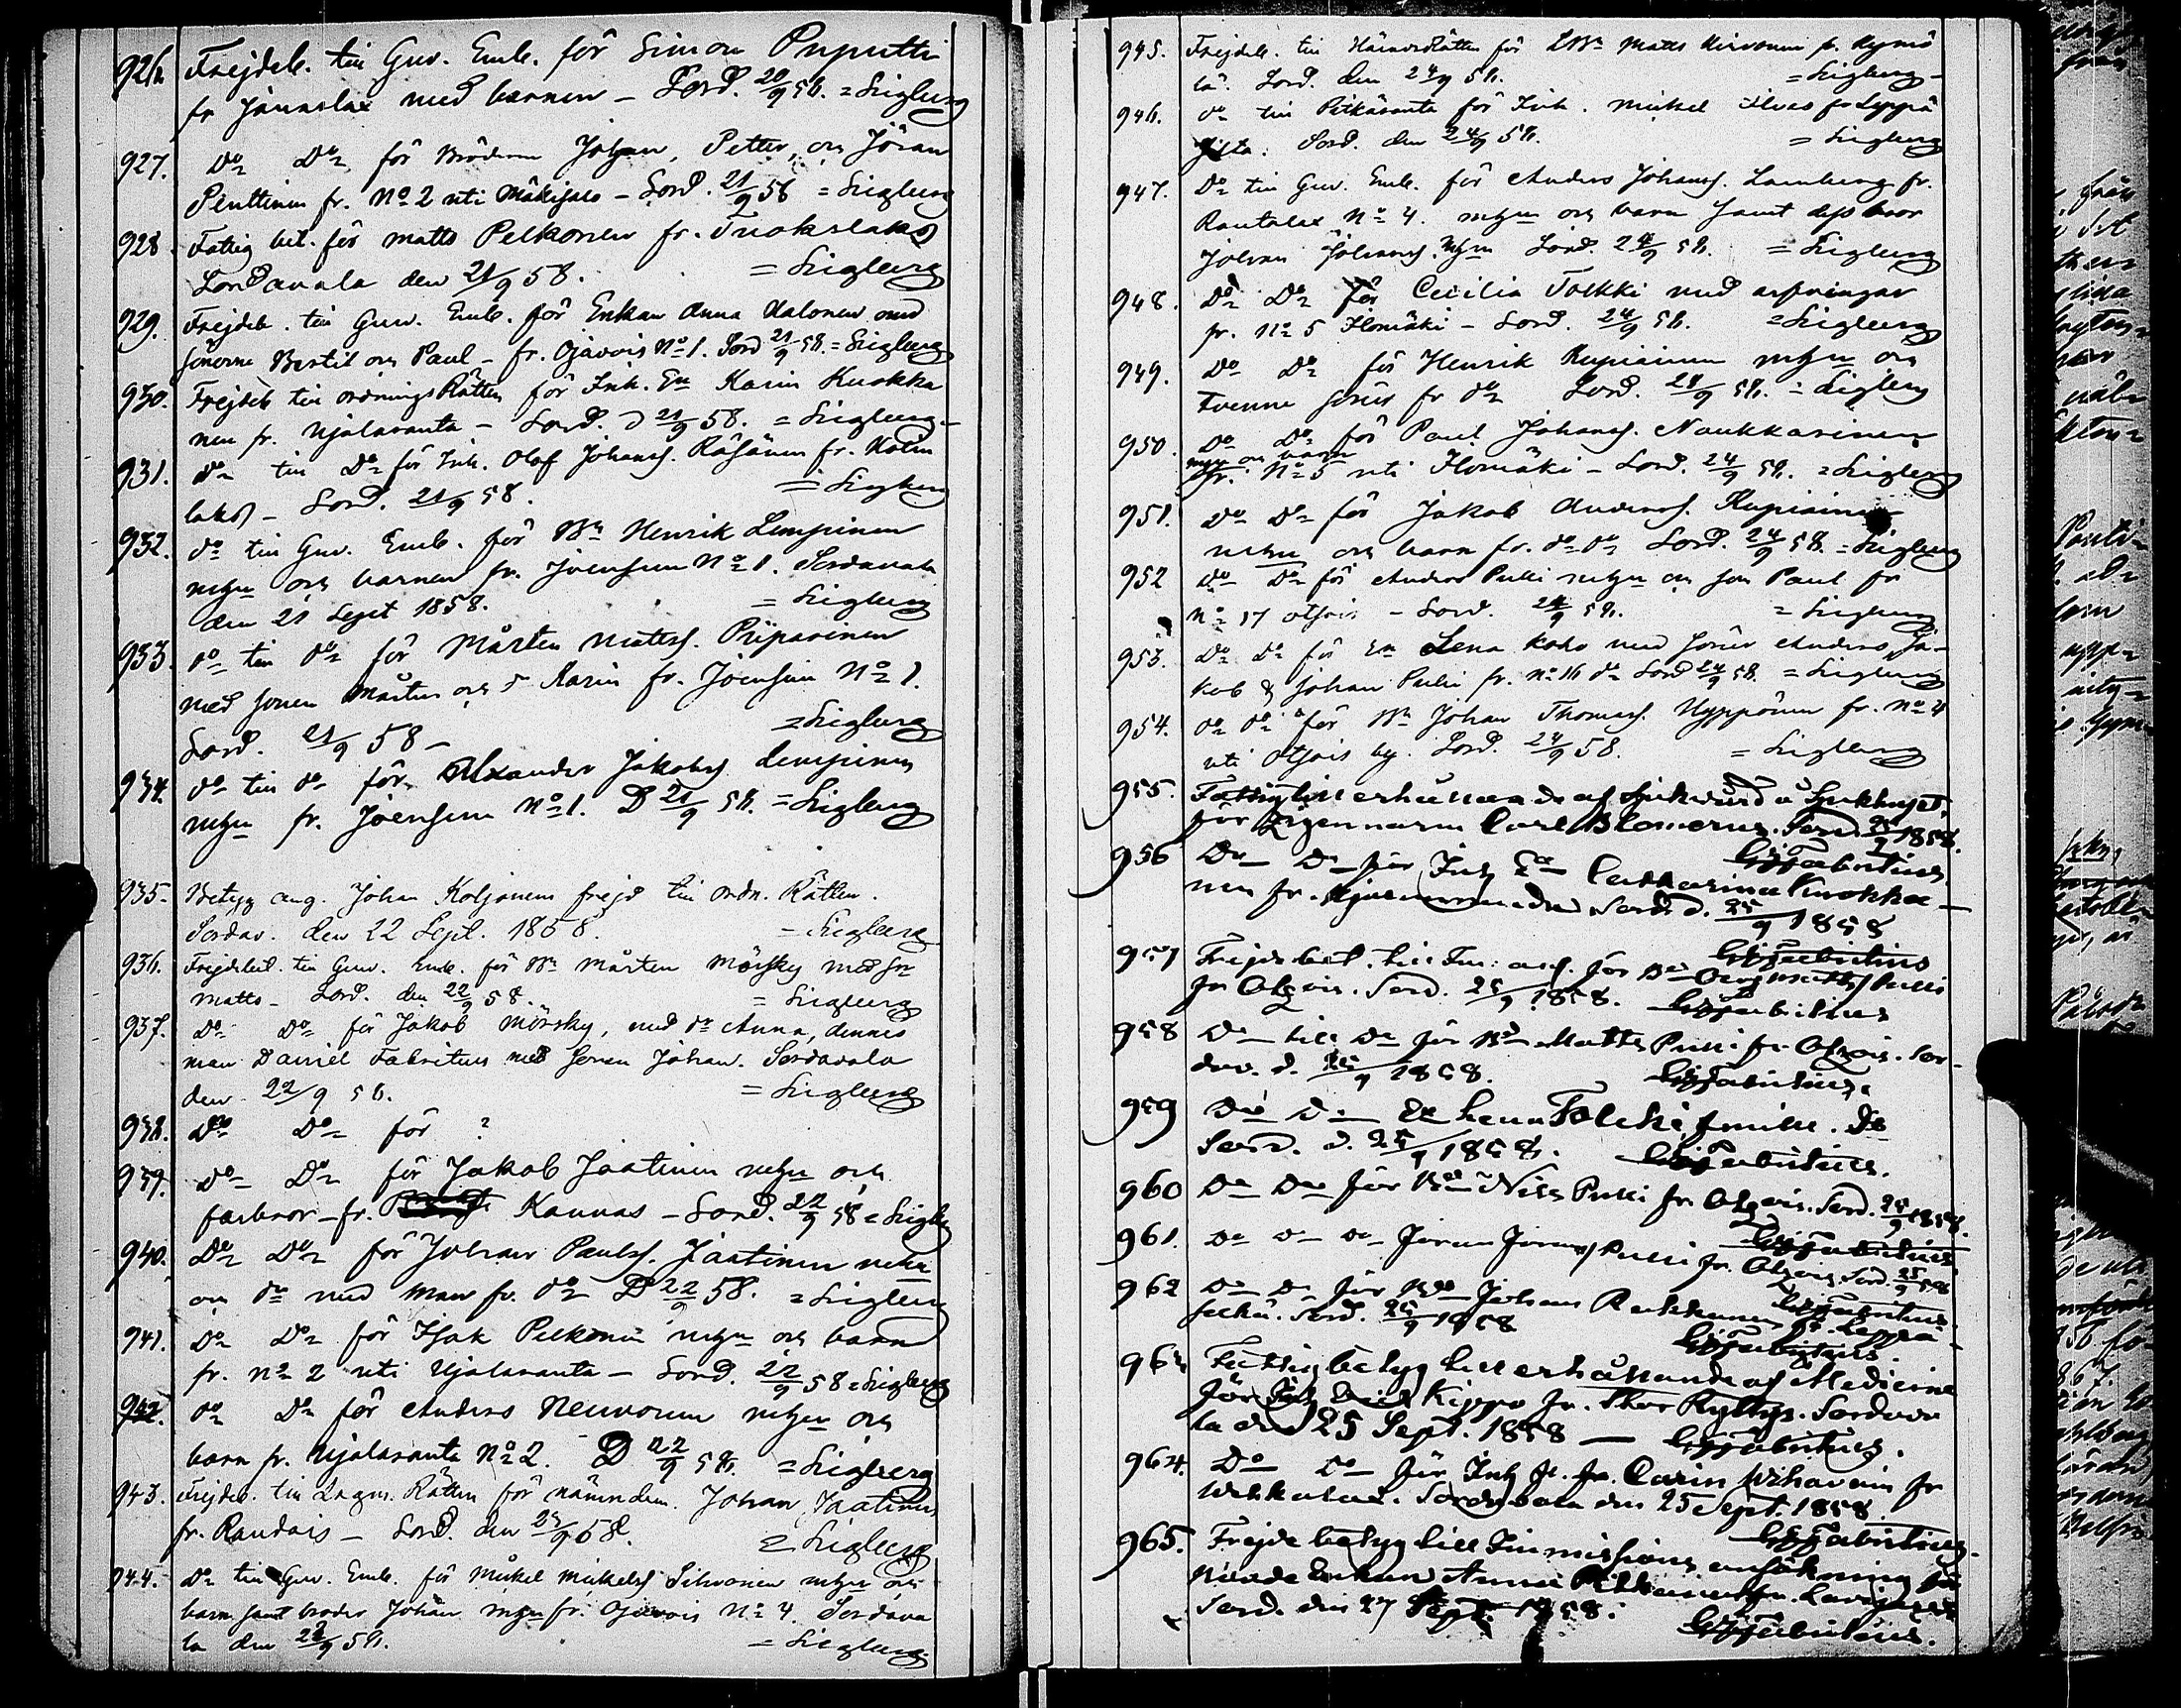 926. Frejdeb. till Guv. Emb. för Simon Puputti
fr Jänaslax med barnen – Sord. 20/9 58. = Siegberg
927. Do Do för Bröderna Johan, Petter, och Jöran
Penttinen fr. No 2 uti Mäkisalo – Sord. 21/9 58 = Siegberg
928. Fattig bet. för Matts Pelkonen fr. Tuokslaks
Sordavala den 21/9 58. = Siegberg
929. Frejdeb. till Guv. Emb. för Enkan Anna Halonen med
sönerne Bertil och Paul – fr. Ojavois No 1. Sord 21/9 58. = Siegberg
930. Frejdeb till ordningsRätten för Inh. En Karin Kuokka
nen fr. Hjalasanta – Sord. D 21/9 58. = Siegberg –
931. do till Do för Inh. Olof Johanss. Räsänen fr. Kotin
laks – Sord. 21/9 58. = Siegberg
932. do till Guv. Emb. för Bn Henrik Lempinen
och barnen fr. Joensuu No 1. Sordavala
den 21 Sept 1858. = Siegberg
933. do till do för Mårten Mattss. Piiparinen
med sonen Mårten och Karin fr. Joensuu No 1.
Sord. 21/9 58 – = Siegberg
934. do till do för Alexander Jakobss Lempinen
fr. Joensuu No 1. D 21/9 58. = Siegberg
935. Betyg ang. Johan Koljonens frejd till ordn. Rätten.
Sordav. den 22 Sept. 1858. – Siegberg
936. Frejdebet. till Guv. Emb. för Bn Mårten Mörsky med Sn
Matts – Sord. den 22/9 58. = Siegberg
937. Do Do för Jakob Mörsky, med dr Anna, dennes
man Daniel Fabritius med sonen Johan. Sordavala
den 22/9 58. = Siegberg
938. Do Do för ?
939. do Do för Jakob Jaatinen och
farbror – fr. Kannas – Sord. 22/9 58 = Siegberg
940. Do Do för Johan Paulss. Jaatinen
och dr med man fr. do D 22/9 58. = Siegberg
941. Do Do för Isak Pelkonen och barn
fr. No 2 uti Hjalasanta – Sord. 22/9 58 = Siegberg
942. do Do för Anders Neuvonen och
barn fr. Hjalasanta No 2. D 22/9 58. = Siegberg
943. Frejdeb. till Lagm. Rätten för nämndem. Johan Jaatinen
fr. Raudais – Sord. den 23/9 58. = Siegberg
944. Do till Guv. Emb. för Mickel Mickelss Silvonen och
barn samt broder Johan fr. Ojavois No 4. Sordava
la den 23/9 58. = Siegberg
945. Frejdeb. till HäradsRätten för LBn Matts Hirvonen fr. Kymö
lä. Sord. den 24/9 58. = Siegberg –
946. do till Pitkäranta för Inh. Mickel Ilves fr Leppä
. Sord. den 24/9 58. = Siegberg
947. Do till Guv. Emb. för Anders Johanss. Lemberg fr.
Rautalax No 4. och barn samt dess bror
Johan Johanss. Sord. 24/9 58. = Siegberg
948. Do Do för Cecilia Tolkki med arfvingar
fr. No 5 Ilomäki – Sord. 24/9 58. = Siegberg
949. Do Do för Henrik Rupiainen och
tvenne söner fr do Sord. 24/9 58. = Siegberg
950. Do Do för Paul Johanss. Naukkarinen
och barn
fr. No 5 uti Ilomäki – Sord. 24/9 58. = Siegberg
951. Do Do för Jakob Anderss. Rupiainen
och barn fr. do do Sord. 24/9 58. = Siegberg
952 do Do för Anders Pulli och son Paul fr
No 17 Otsois – Sord. 24/9 58. = Siegberg
953. Do Do för En Lena Koho med söner Anders, Ja-
kob & Johan Pulli fr. No 16 do Sord 24/9 58. = Siegberg
954. do do för Bn Johan Thomass. Hyppönen fr. No 4
uti Otsois by. Sord. 24/9 58. = Siegberg
955. Fattig till erhållande af Sjukvård å Sjukhuset,
för Zigenaren Carl Blomerus. Sord. 25/9 1858.
Fabritius.
956 Do Do för Inh En Catharina Kuokka-
nen fr. Sord d. 25/9 1858
Fabritius
957 Frejdebet. till Im: ans. för Bn Matts/ Pulli
fr Otsois. Sord. 25/9 1858. Fabritius
958 Do till Do för Bn Matts Pulli fr. Otsois. Sor-
dav. d. 25/9 1858. Fabritius.
959 Do Do En Lena Tolcki Do
Sord. d. 25/9 1858. Fabritius.
960 Do Do för Bn Nils Pulli fr. Otsois. Sord. 25/9 1858.
Fabritius.
961. Do Do Do Jöran Jöranss/ Pulli fr. Otsois Sord. 25/9 58
Fabritius.
962 Do Do för Bn Johan fr. Leppä-
selkä. Sord. 25/9 1858 Fabritius.
963 Fattigbetyg till erhållande af Medicin
för Inh Kippo fr. Rytty. Sordava
la den 25 Sept. 1858 — Fabritius.
964. Do Do för Inh Carin Wihavain fr
. Sordavala den 25 Sept. 1858
Fabritius.
965. Frejdebetyg till Immissions ansökning
Enkan Anna fr.
Sord. den 27 Sept. 1858.
Fabritius.